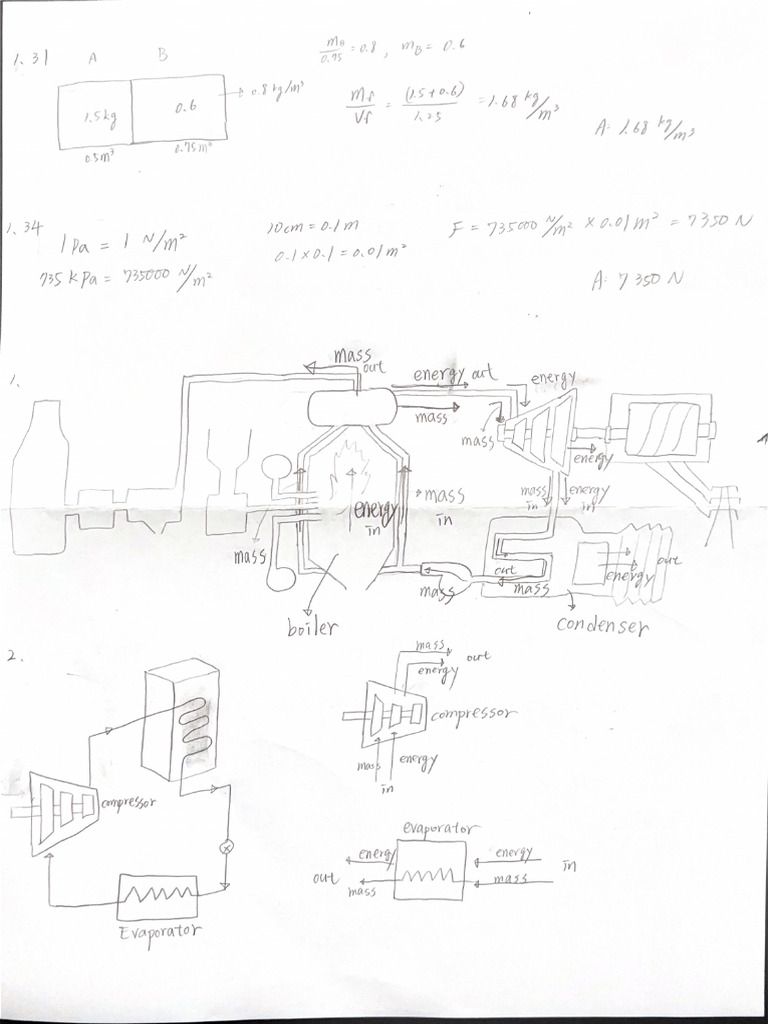 1.31 A B
1.5kg 0.6 0.8 kg/m³
0.5m³ 0.75m³
m_B/0.75 = 0.8, m_B = 0.6
m_f/V_f = (1.5+0.6)/1.25 = 1.68 kg/m³
A: 1.68 kg/m³
1.34
1 Pa = 1 N/m²
735 kPa = 735000 N/m²
10cm = 0.1 m
0.1 × 0.1 = 0.01 m²
F = 735000 N/m² × 0.01 m² = 7350 N
A: 7350 N
1.
mass out
energy out
mass
energy
mass
energy
mass in
energy in
mass in
energy in
mass
out
mass
mass
energy
out
boiler
condenser
2.
compressor
Evaporator
mass
energy
out
compressor
mass
energy
in
evaporator
energy
mass
out
energy
mass
in